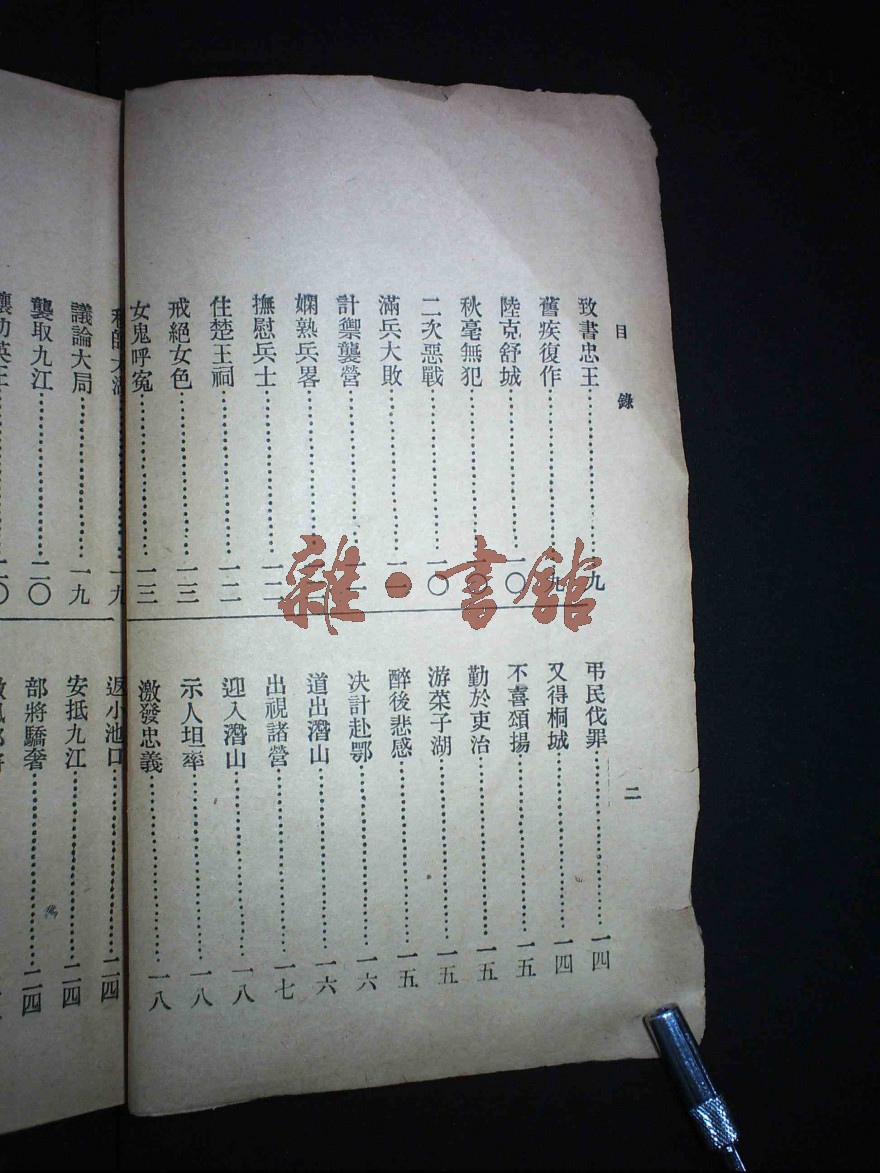 目錄
二
致書忠王……九
舊疾復作……九
陸克舒城……一〇
秋毫無犯……一〇
二次惡戰……一〇
滿兵大敗……一一
計禦襲營……一一
嫻熟兵畧……
撫慰兵士……一二
住楚王祠……一二
戒絕女色……一三
女鬼呼冤……一三
弔民伐罪……一四
又得桐城……一四
不喜頌揚……一五
勤於吏治……一五
游菜子湖……一五
醉後悲感……一五
決計赴鄂……一六
道出潛山……一六
出視諸營……一七
迎入潛山……一八
示人坦率……一八
激發忠義……一八
……一九
議論大局……一九
襲取九江……二〇
英王……二〇
返小池口……二四
安抵九江……二四
部將驕奢……二四
雜·書館